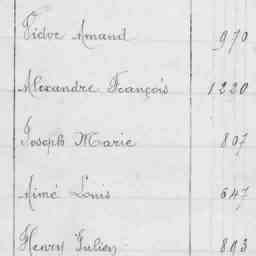 Amand 970
Alexandre François 1220
Joseph Marie 807
Aimé Louis 647
Henry Julien 893